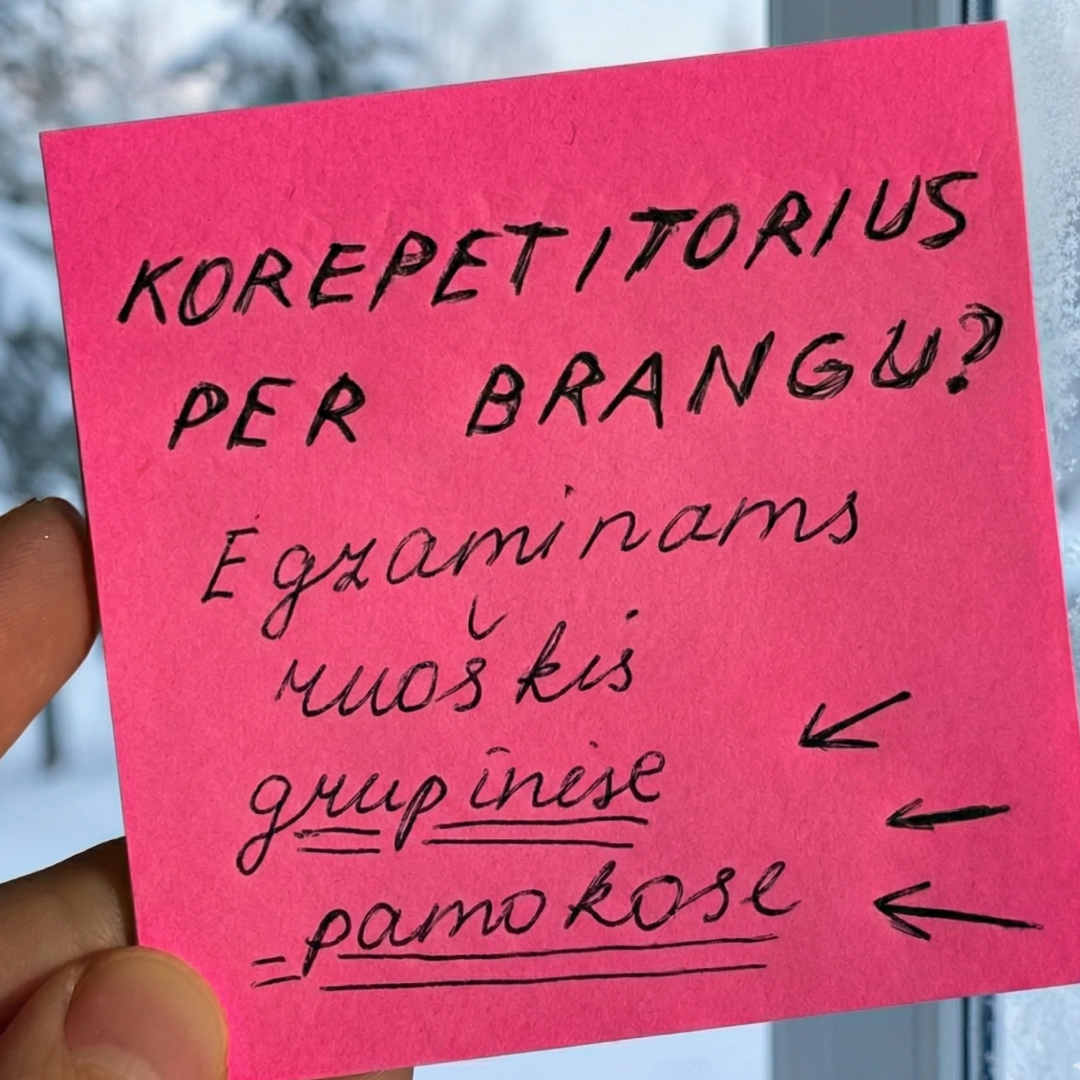 KOREPETITORIUS
PER BRANGU?
Egzaminams
ruoškis
grupinėse
pamokose